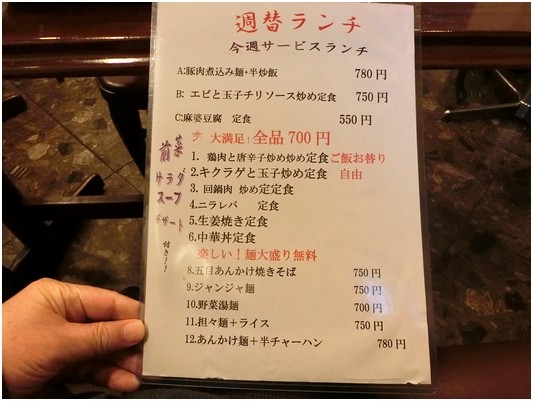 週替ランチ
今週サービスランチ
A:豚肉煮込み麺+半炒飯 780円
B: エビと玉子チリソース炒め定食 750円
C:麻婆豆腐 定食 550円
大満足!全品700円
1. 鶏肉と唐辛子炒め炒め定食ご飯お替り
2.キクラゲと玉子炒め定食 自由
3. 回鍋肉 炒め定定食
4.ニラレバ 定食
5.生姜焼き定食
6.中華丼定食
楽しい!麺大盛り無料
8.五目あんかけ焼きそば 750円
9.ジャンジャ麺 750円
10.野菜湯麺 700円
11.担々麺+ライス 750円
12.あんかけ麺+半チャーハン 780円
前菜
サラダ
スープ
デザート
付き!!